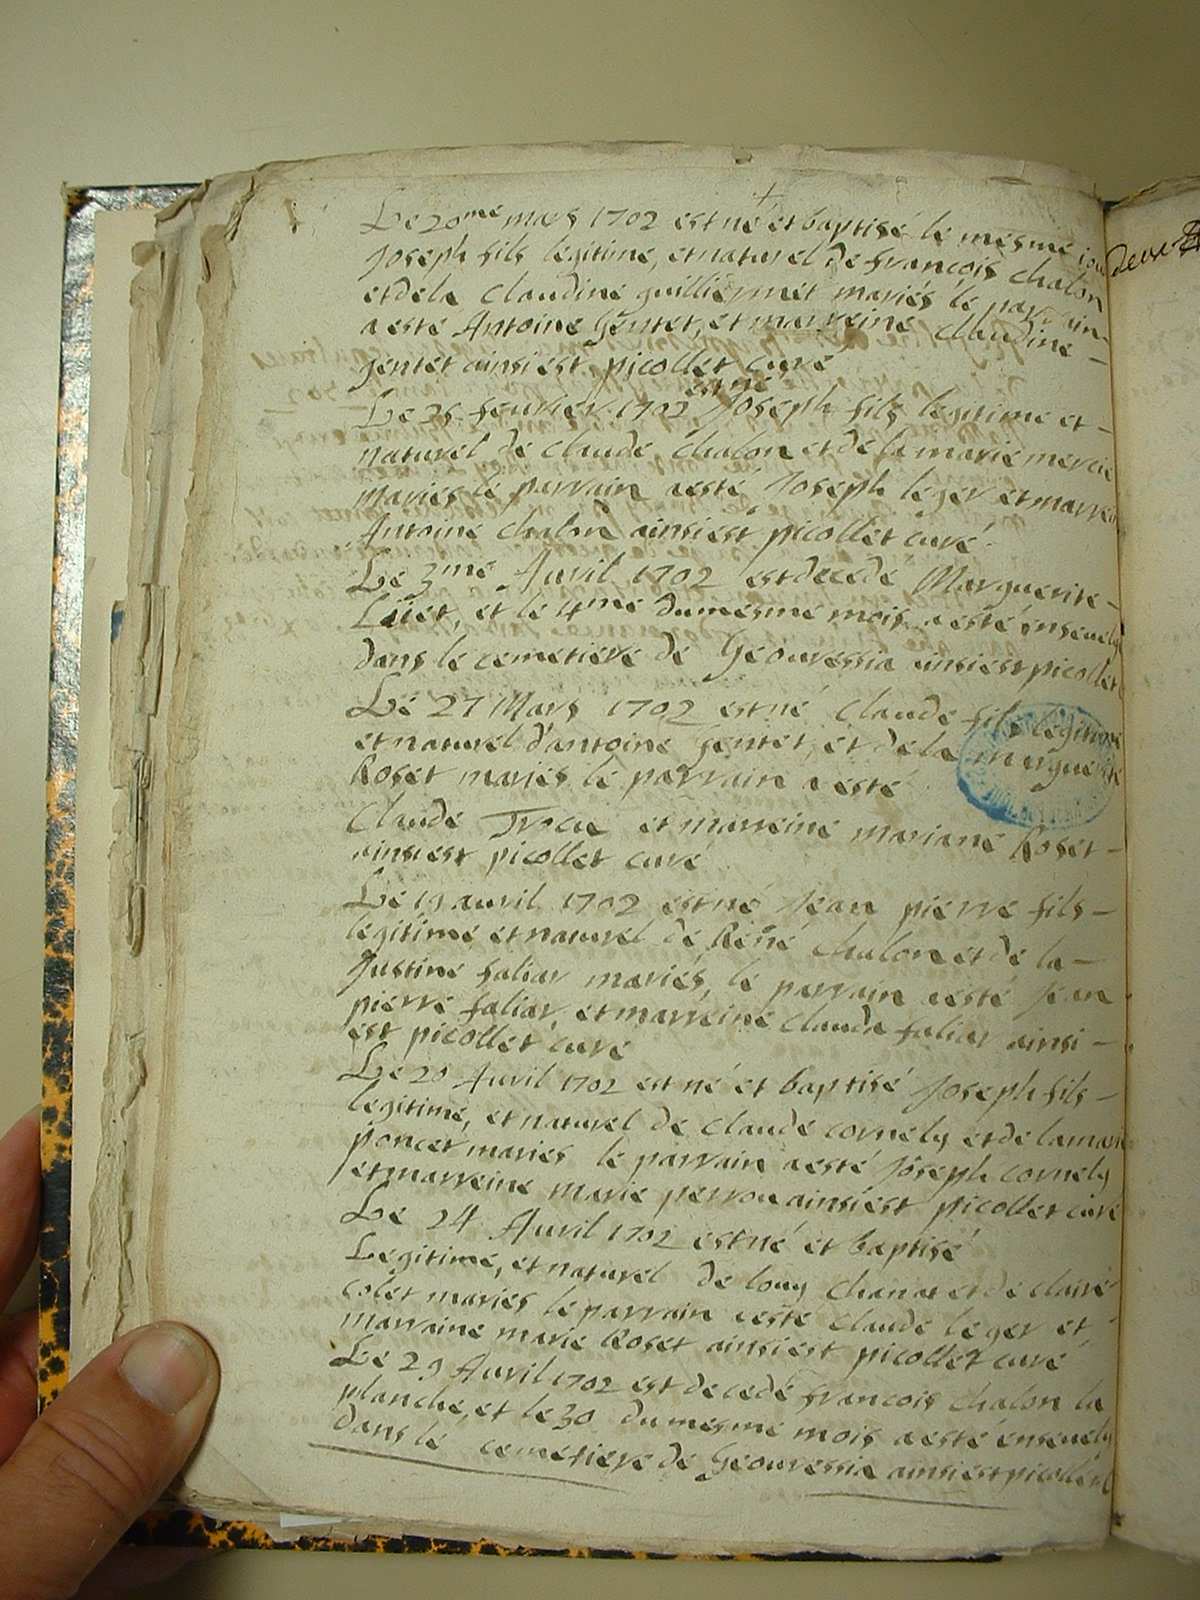 Le 20me mars 1702 est né et baptisé le mesme jou
Joseph fils légitime, et naturel de françois chalon
et de la Claudine guilliermet mariés le parrain
a esté Antoine Gentet, et marreine Claudine
gentet ainsi est picollet curé
est né
Le 25 feurier 1702 Joseph fils legitime et
naturel de claude chalon et de la marie mercie
mariés le parrain a esté Joseph leger et marrei
Antoine chalon ainsi est picollet curé
Le 3me Auril 1702 est decedé Marguerite
et le 4me du mesme mois a esté enseuely
dans le cemetiere de Geouressia ainsi est picollet
Le 27 Mars 1702 est né claude fils legitime
et naturel d'antoine Gentet, et de la marguerite
Roset mariés le parrain a esté
Claude Trocu et marreine mariane Roset
ainsi est picollet curé
Le 19 auril 1702 est né Jean pierre fils
legitime et naturel de Réné chalon et de la
Justine faliar mariés, le parrain a esté Jean
pierre faliar, et marreine claude faliar ainsi
est picollet curé
Le 20 Auril 1702 est né et baptisé Joseph fils
legitime, et naturel de Claude cornely et de la marie
poncet mariés le parrain a esté Joseph cornely
et marreine marie perrou ainsi est picollet curé
Le 24 Auril 1702 est né et baptisé
Legitime, et naturel de louy chanat et de claire
colet mariés le parrain a esté claude leger et
marraine marie Roset ainsi est picollet curé
Le 29 Auril 1702 est decedé francois chalon la
planche, et le 30 du mesme mois a esté enseuely
dans le cemetiere de Geouressia ainsi est picollet